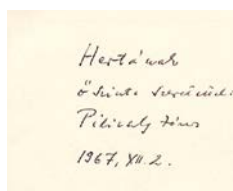 Hertának
őszinte szeretettel:
Pilinszky János
1967, XII. 2.